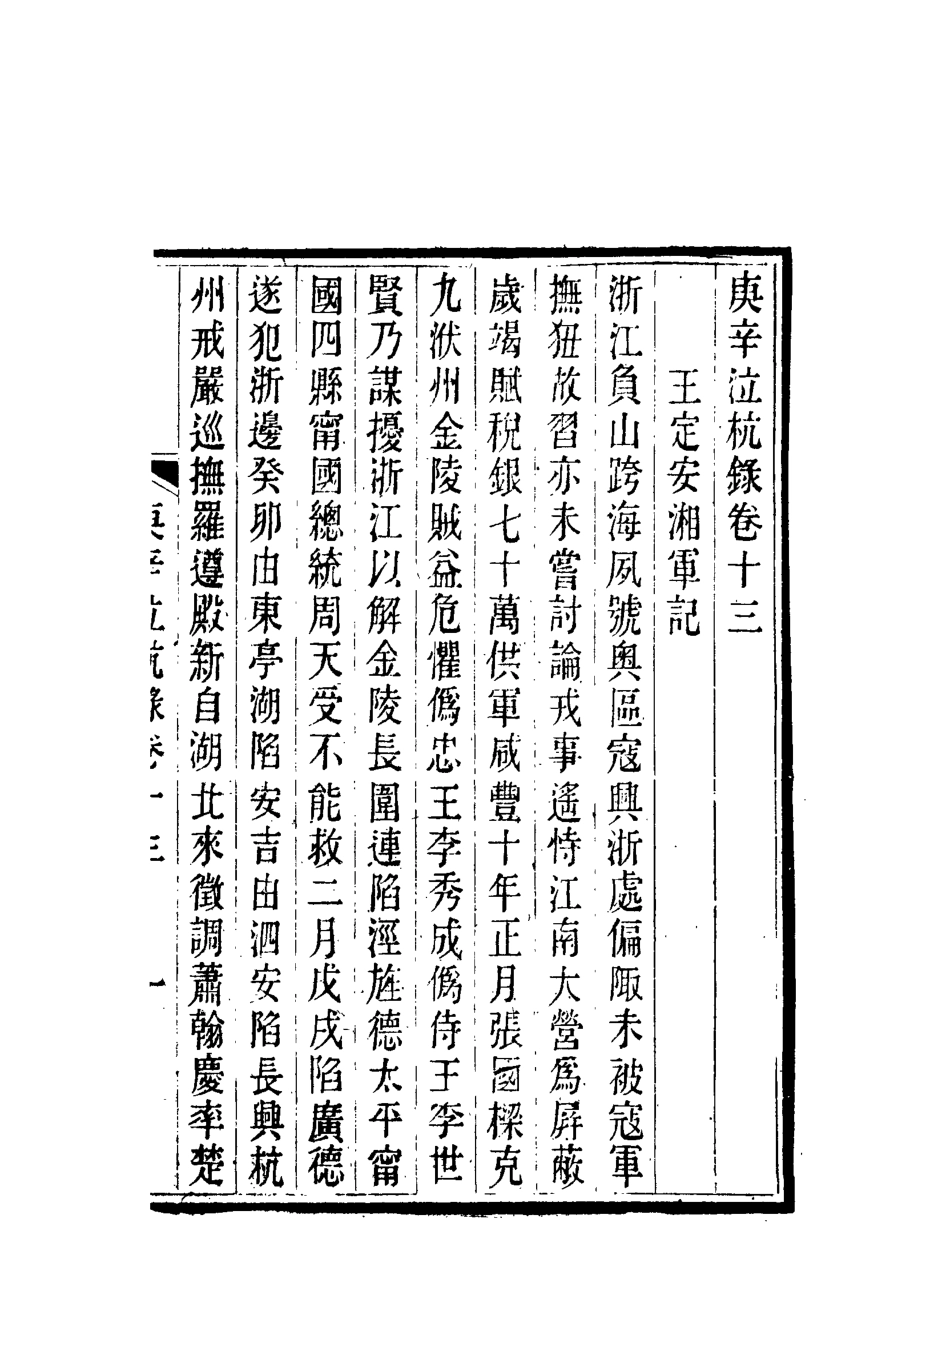 庚辛泣杭錄卷十三
王定安湘軍記
浙江負山跨海夙號奧區寇興浙處偏陬未被寇軍
撫狃故習亦未嘗討論戎事遙恃江南大營爲屏蔽
歲竭賦稅銀七十萬供軍咸豐十年正月張國樑克
九洑州金陵賊益危懼僞忠王李秀成僞侍王李世
賢乃謀擾浙江以解金陵長圍連陷涇旌德太平甯
國四縣甯國總統周天受不能救二月戊戌陷廣德
遂犯浙邊癸卯由東亭湖陷安吉由泗安陷長興杭
州戒嚴巡撫羅遵殿新自湖北來徵調蕭翰慶率楚
庚辛泣杭錄卷十三 一